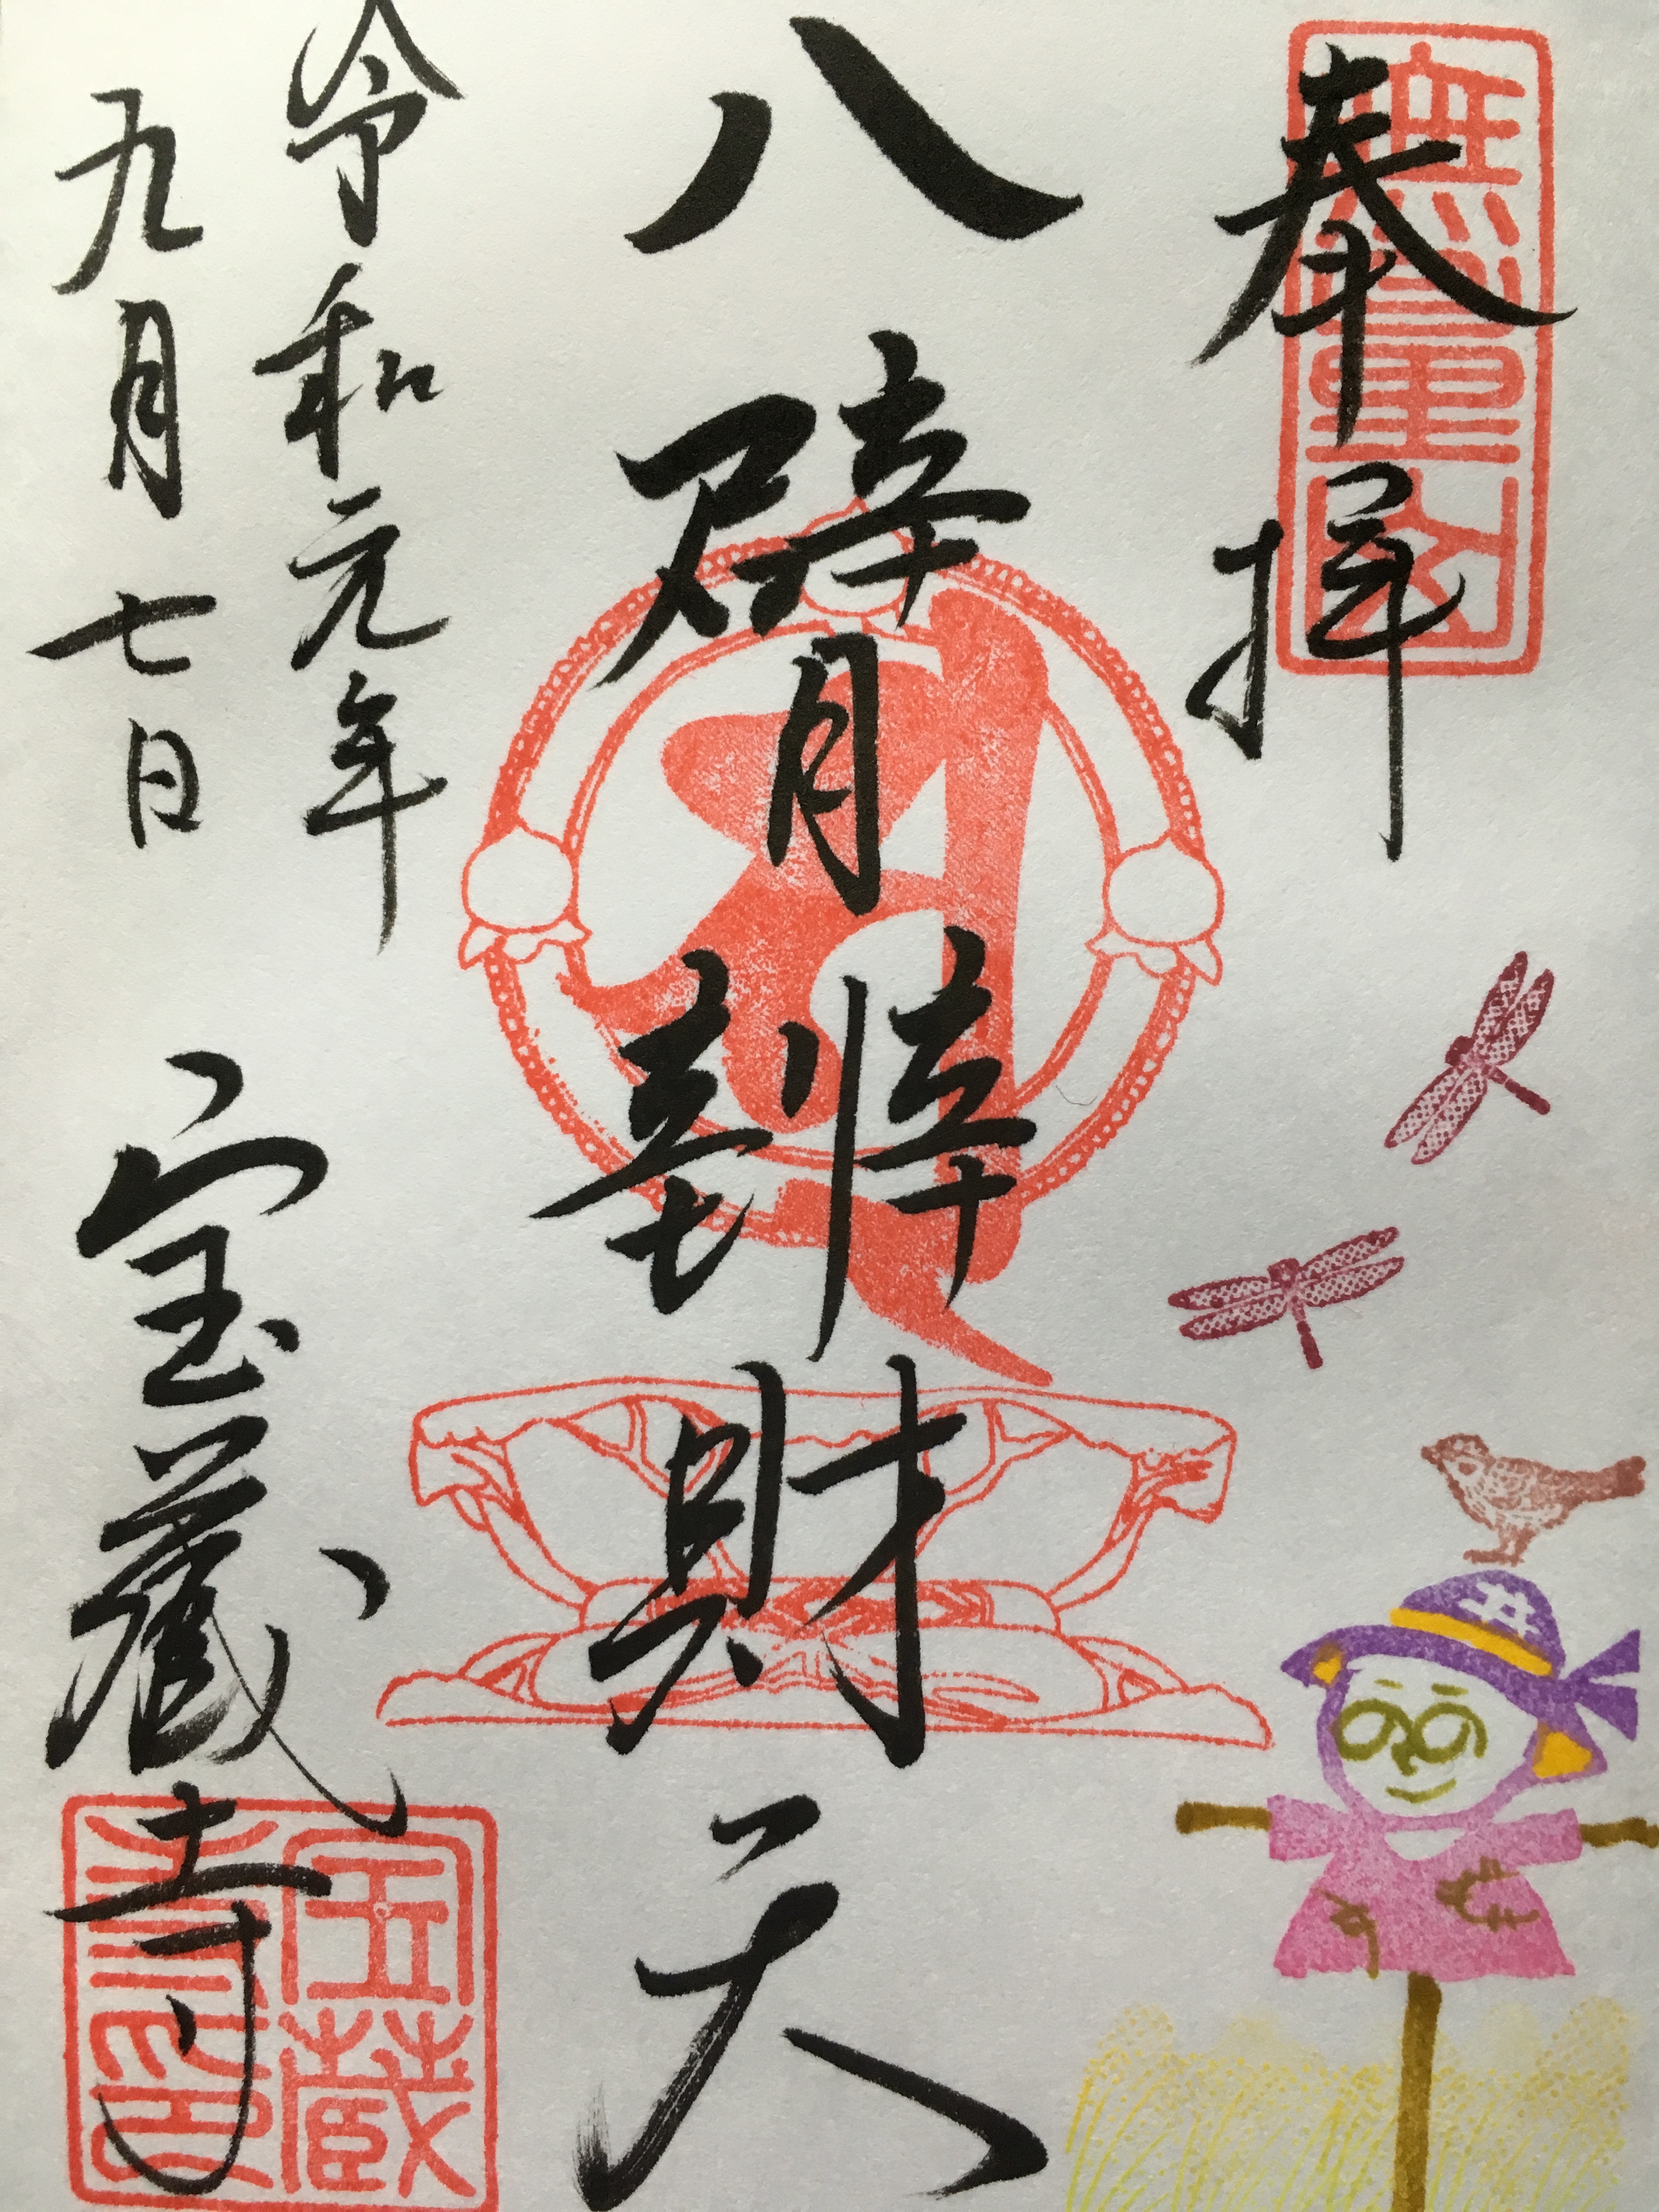 奉拝
無量山
八臂辨財天
令和元年
九月七日
宝蔵寺
宝蔵
寺印